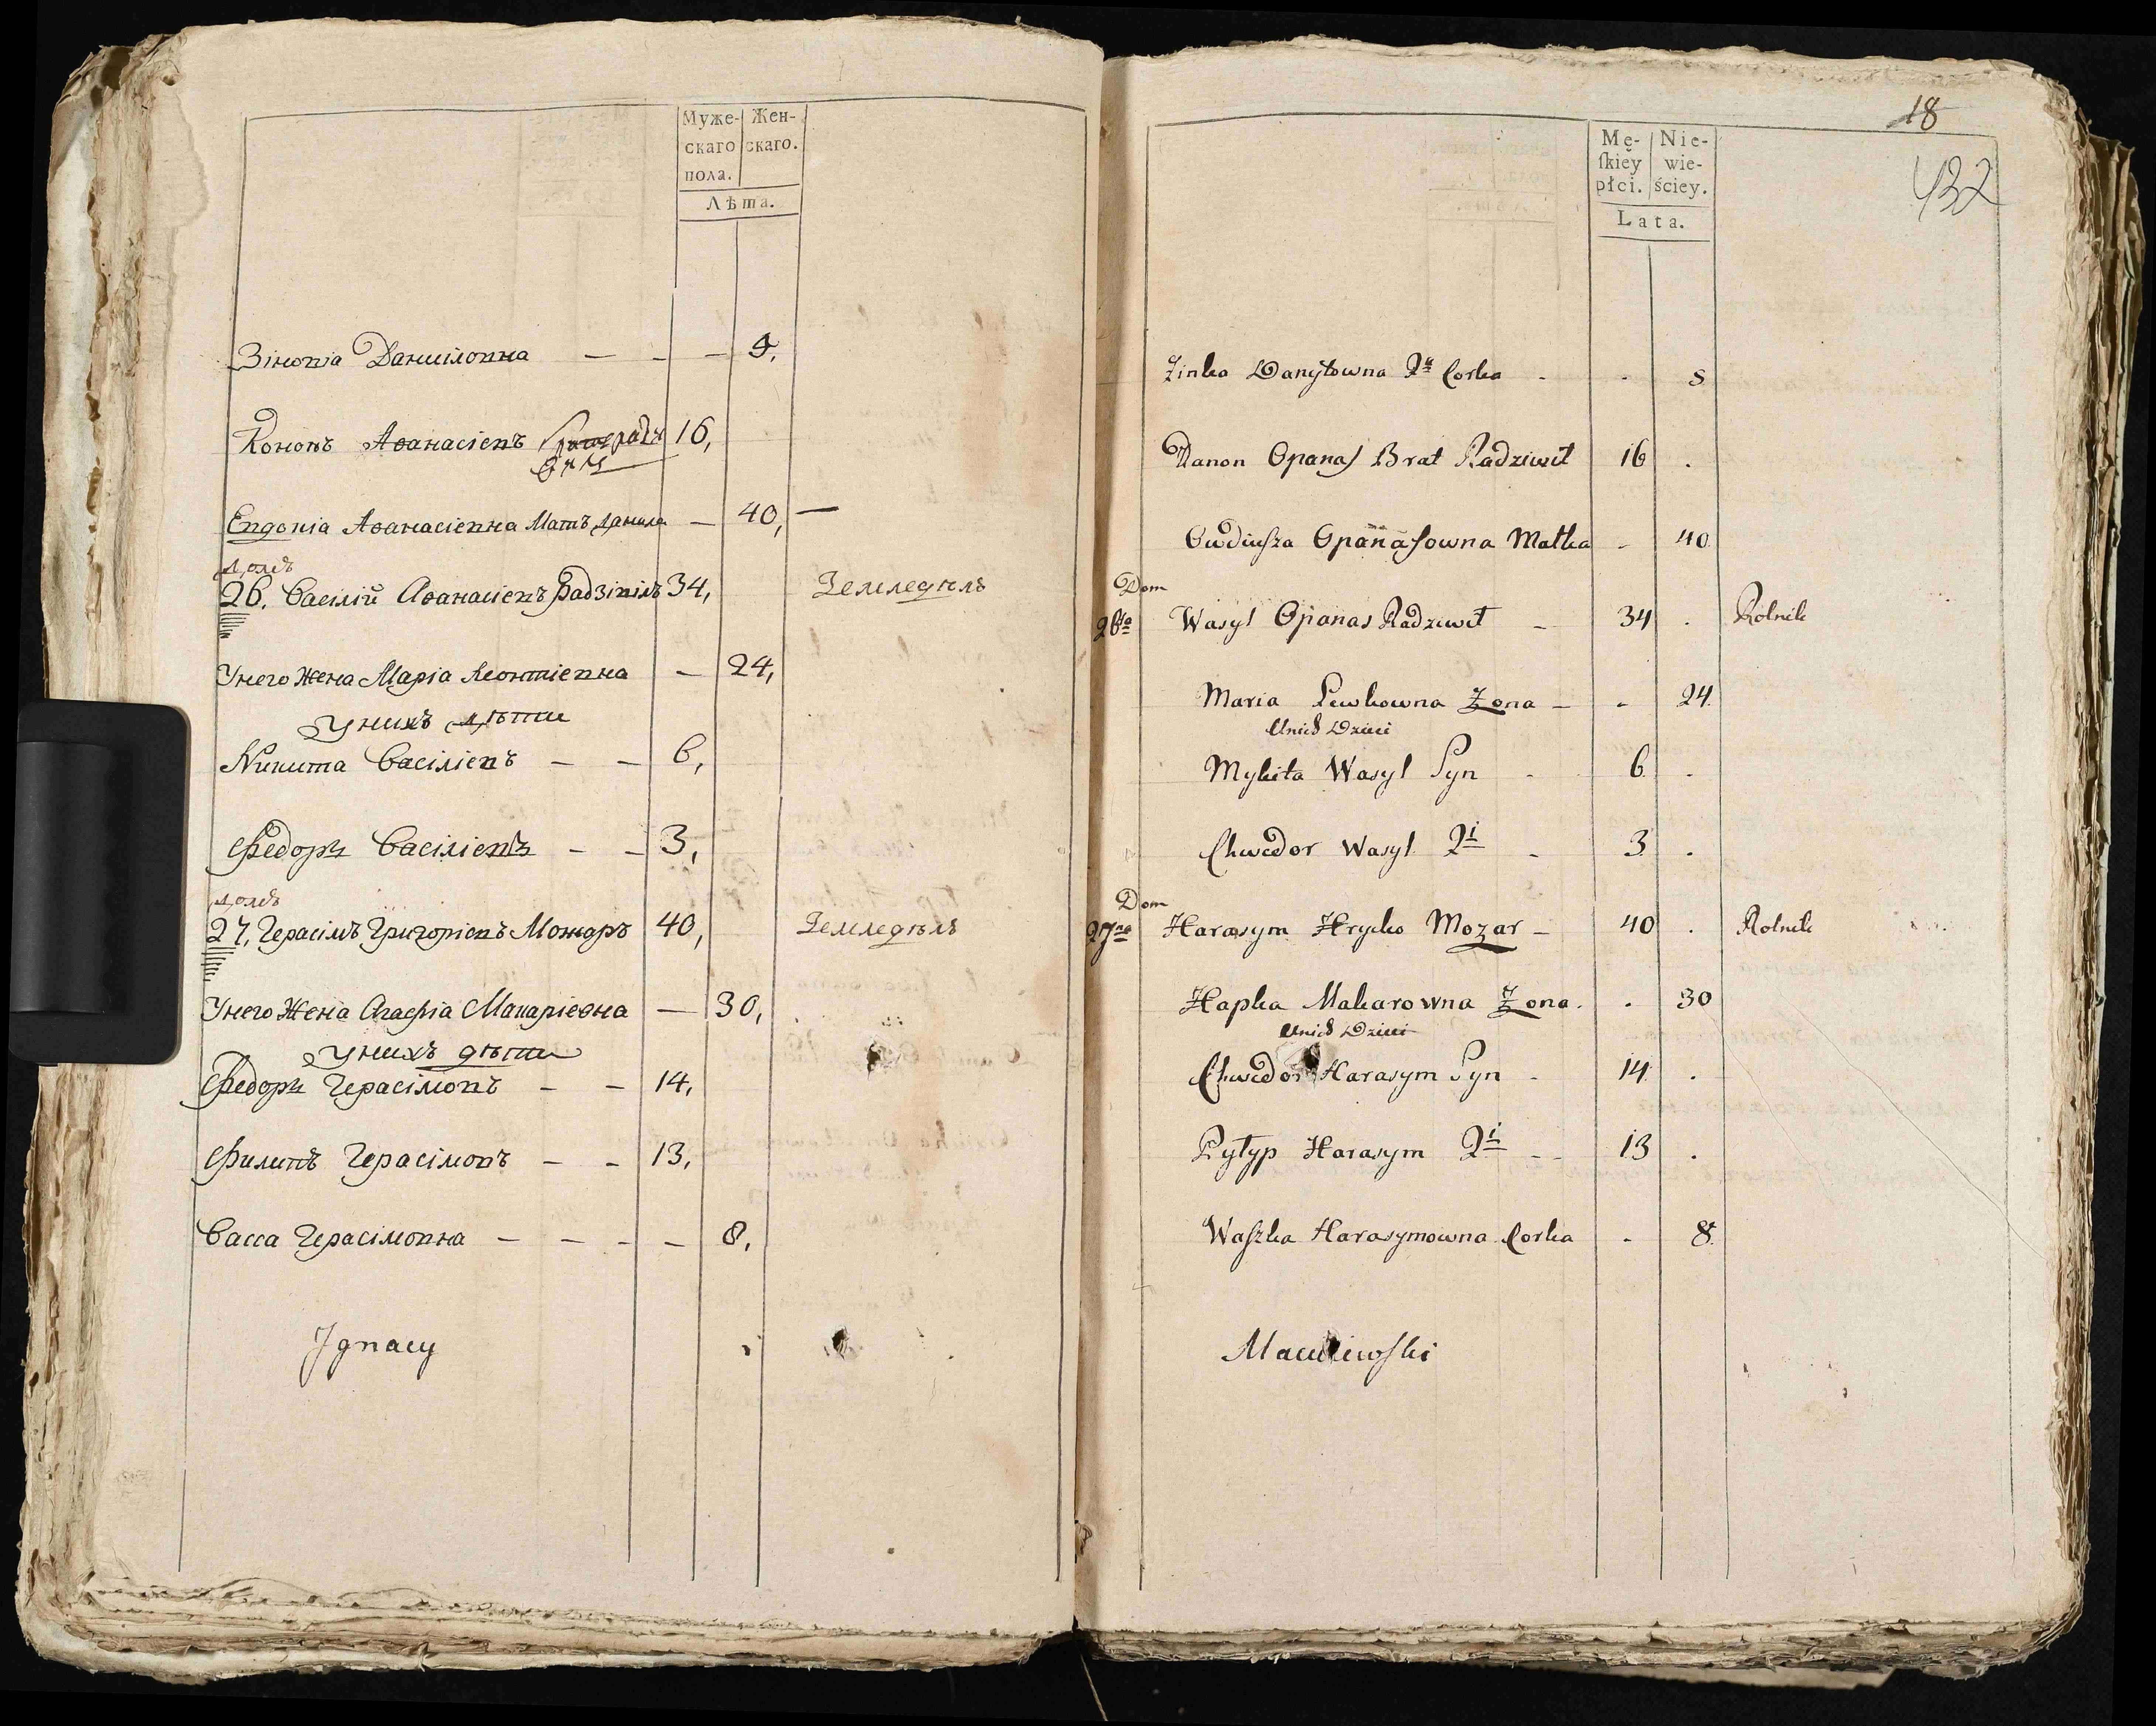 Муже-
скаго
пола.
Жен-
скаго.
Лѣта.
Зіновіа Даниіловна — — — 9,
Кононъ Аѳанасіевъ 16,
Евдокіа Аѳанасіевна Мать Данила — 40, —
домъ
26. Васілій Аѳанасіевъ Радзівілъ 34, Земледѣлъ
Унего Жена Маріа Леонтіевна — 24,
Унихъ дѣти
Никита Васіліевъ — — 6,
Федоръ Васіліевъ — — 3,
домъ
27, Герасімъ Григоріевъ Можаръ 40, Земледѣлъ
Унего Жена Агафіа Макаріевна — 30,
Унихъ дѣти
Федоръ Герасімовъ — — 14,
Филипъ Герасімовъ — — 13,
Васса Герасімовна — — — — 8,
Jgnacy
18
432
Mę-
ſkiéy
płci.
Nie-
wie-
ściey.
Lata.
Zinka Danyłowna 2a Corka - - 8
Kanon Opanas Brat Radziwił 16 .
Owdiuſza Opanaſowna Matka - 40
Dom
26ta Wasyl Opanas Radziwił - 34 . Rolnik
Maria Lewkowna Zona - - 24.
Unich Dzieci
Mykita Wasyl Syn - 6 .
Chwedor Wasyl 2i - 3 .
Dom
27ma Harasym Hrycko Mozar - 40 . Rolnik
Hapka Makarowna Zona . . 30
Unich Dzieci
Chwedor Harasym Syn - 14 .
Pytyp Harasym 2i - - 13 .
Waſzka Harasymowna Corka - 8.